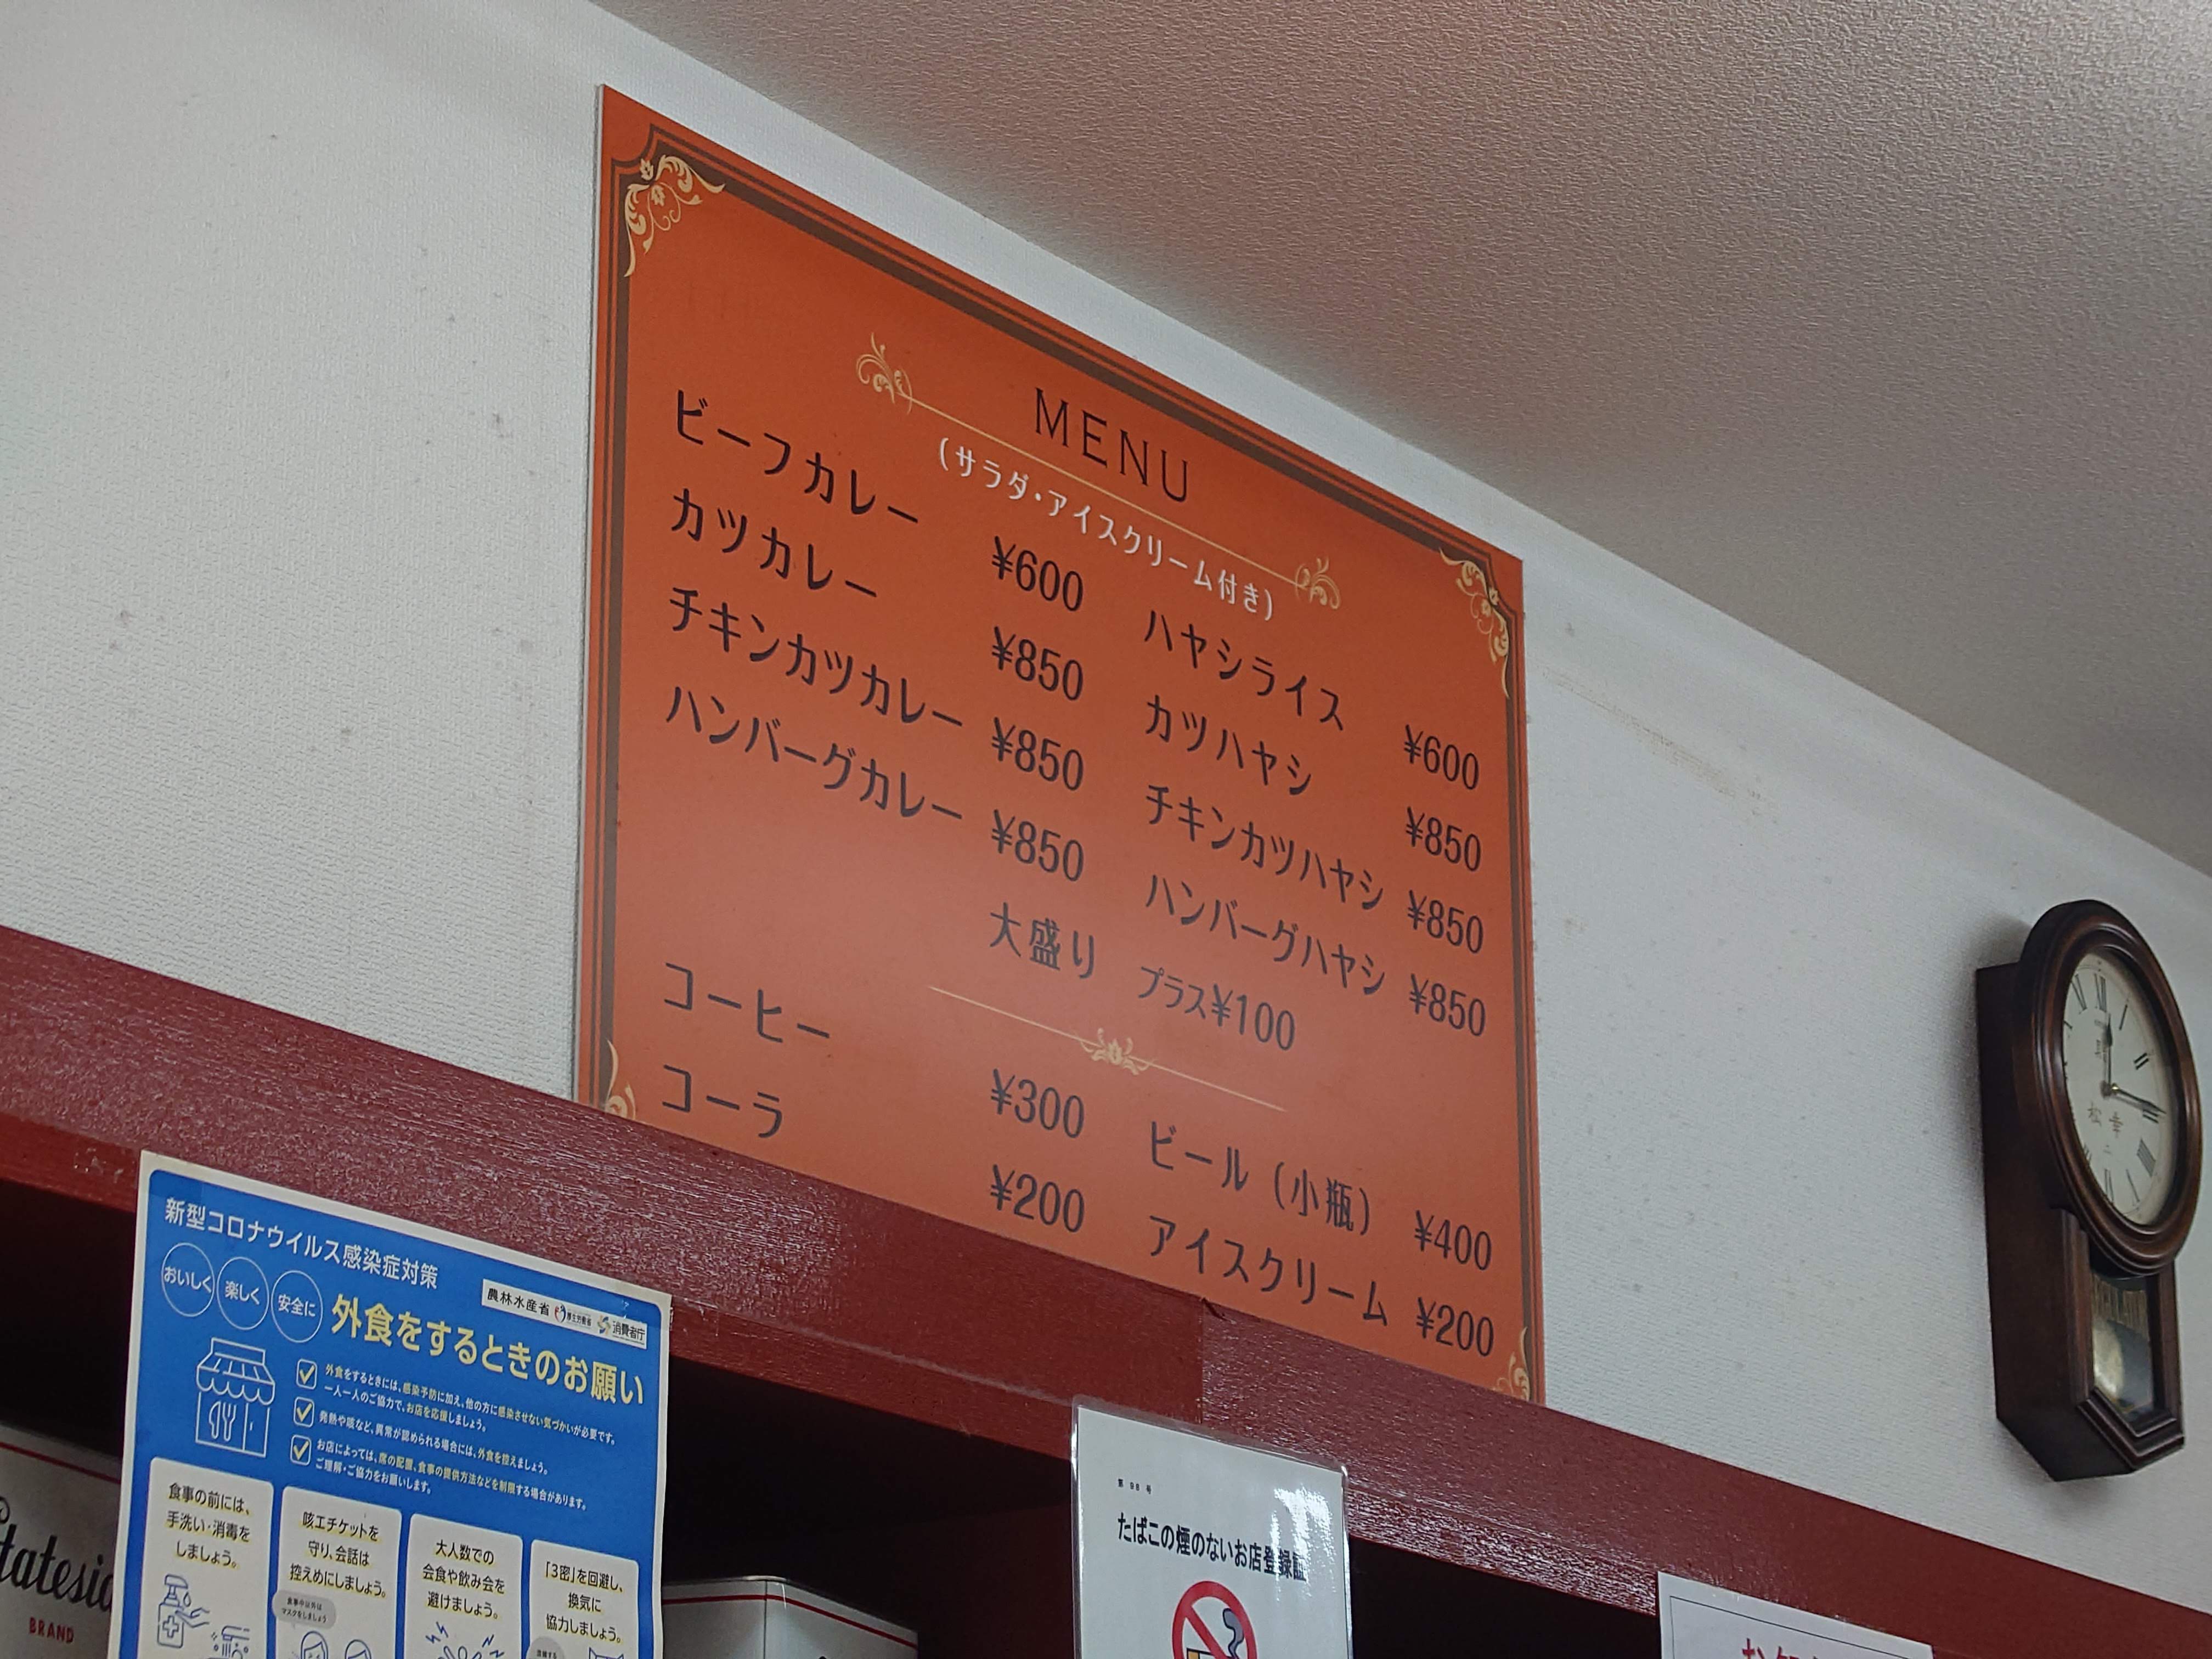 MENU
(サラダ・アイスクリーム付き)
ビーフカレー ¥600
カツカレー ¥850
チキンカツカレー ¥850
ハンバーグカレー ¥850
ハヤシライス ¥600
カツハヤシ ¥850
チキンカツハヤシ ¥850
ハンバーグハヤシ ¥850
大盛り プラス¥100
コーヒー ¥300
コーラ ¥200
ビール(小瓶) ¥400
アイスクリーム ¥200
新型コロナウイルス感染症対策
おいしく 楽しく 安全に
農林水産省 厚生労働省 消費者庁
外食をするときのお願い
外食をするときには、感染予防に加え、他の方に感染させない気づかいが必要です。
一人一人のご協力で、お店を応援しましょう。
発熱や咳など、異常が認められる場合には、外食を控えましょう。
お店によっては、席の配置、食事の提供方法などを制限する場合があります。
ご理解・ご協力をお願いします。
食事の前には、
手洗い・消毒を
しましょう。
咳エチケットを
守り、会話は
控えめにしましょう。
食事中以外は
マスクをしましょう
大人数での
会食や飲み会を
避けましょう。
「3密」を回避し、
換気に
協力しましょう。
第 98 号
たばこの煙のないお店登録証
BRAND